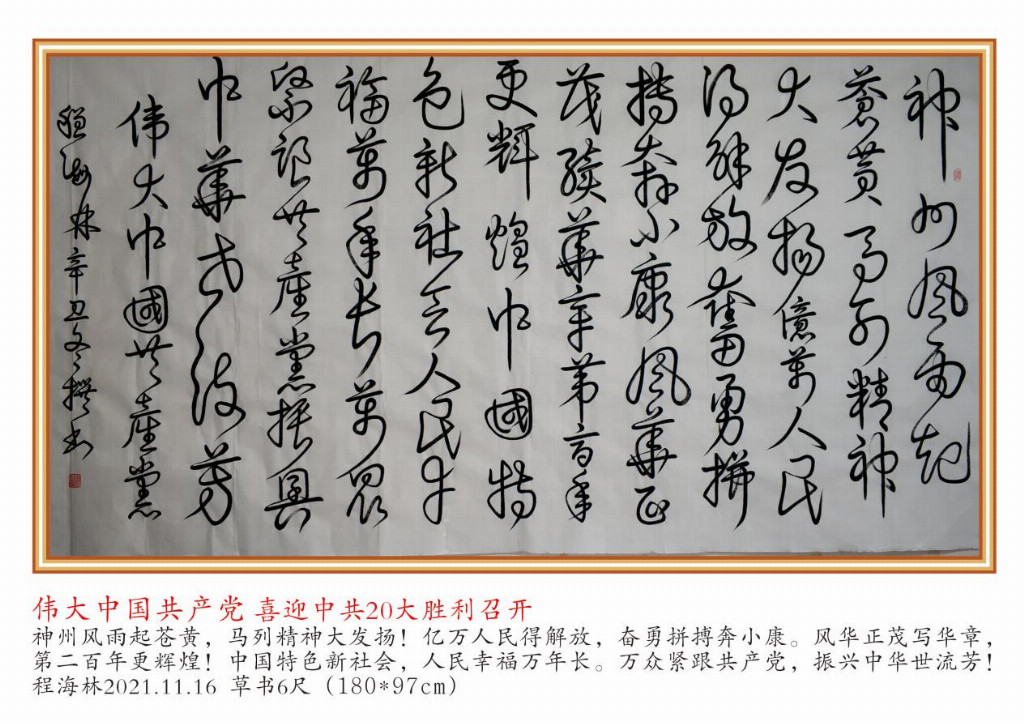 神州风雨起
蒼黄马列精神
大发揚億萬人民
得解放奮勇拼
搏奔小康风華正
茂續華章第二百年
更輝煌中國特
色新社会人民幸
福萬年长萬眾
緊跟共產黨振興
中華世流芳
伟大中國共產黨
程海林辛丑冬撰书
伟大中国共产党 喜迎中共20大胜利召开
神州风雨起苍黄，马列精神大发扬！亿万人民得解放，奋勇拼搏奔小康。风华正茂写华章，
第二百年更辉煌！中国特色新社会，人民幸福万年长。万众紧跟共产党，振兴中华世流芳！
程海林2021.11.16 草书6尺（180*97cm）